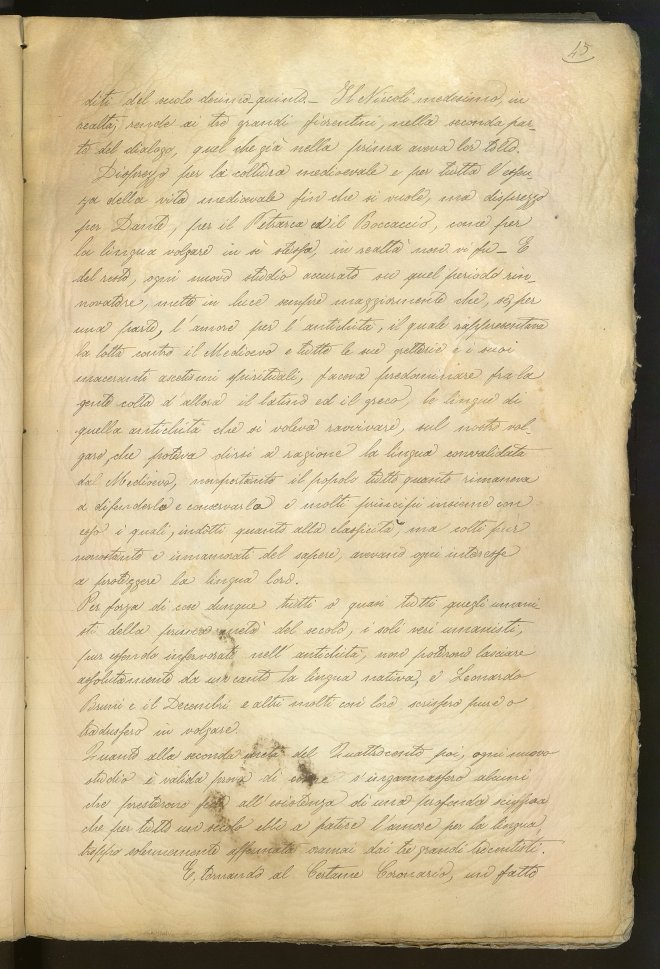 45
diti del secolo decimo quinto. – Il Niccoli medesimo, in
realtà, rende ai tre grandi fiorentini, nella seconda par-
te del dialogo, quel che già nella prima aveva lor tolto.
Disprezzo per la coltura medioevale e per tutta l'essen
za della vita medioevale fin che si vuole, ma disprezzo
per Dante, per il Petrarca ed il Boccaccio, come per
la lingua volgare in sè stessa, in realtà non vi fu – E
del resto, ogni nuovo studio accurato su quel periodo rin-
novatore, mette in luce sempre maggiormente che, se per
una parte, l'amore per l'antichità, il quale rappresentava
la lotta contro il Medioevo e tutte le sue grettezze e i suoi
maceranti ascetismi spirituali, faceva predominare fra la
gente colta d'allora il latino ed il greco, le lingue di
quella antichità che si voleva ravvivare, sul nostro vol
gare, che poteva dirsi a ragione la lingua convalidata
dal Medioevo, nonpertanto il popolo tutto quanto rimaneva
a difenderla e conservarla e molti principi insieme con
esso i quali, indotti quanto alla classicità, ma colti pur
nonostante e innamorati del sapere, avevano ogni interesse
a proteggere la lingua loro.
Per forza di cose dunque tutti o quasi tutti quegli umani
sti della prima metà del secolo, i soli veri umanisti,
pur essendo infervorati nell'antichità, non poterono lasciare
assolutamente da un canto la lingua nativa, e Leonardo
Bruni e il Decembri e altri molti con loro scrissero pure o
tradussero in volgare.
Quanto alla seconda metà del Quattrocento poi, ogni nuovo
studio è valida prova di come s'ingannassero alcuni
che prestarono fede all'esistenza di una profonda
che per tutto un secolo ebbe a patire l'amore per la lingua
troppo solennemente affermata oramai dai tre grandi trecentisti.
E, tornando al Certame Coronario, un fatto